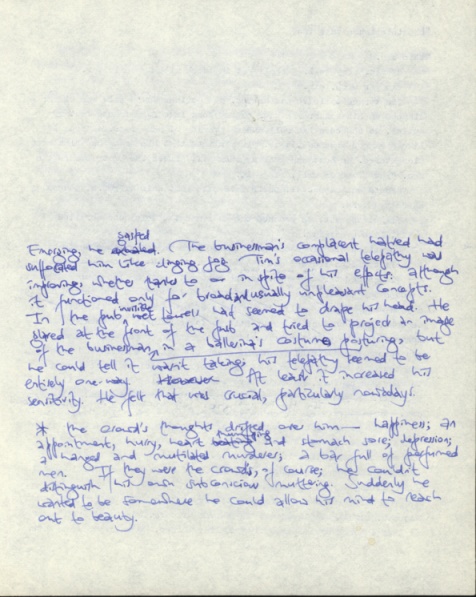 gasped
Emerging, he exhaled. (The businessman's complacent hatred had
suffocated him like clinging fog. Tim's occasional telepathy was
improving, whether thanks to or in spite of his efforts, although
it functioned only for broad and usually unpleasant concepts.
In the pub moist towels had seemed to drape his head. He
stared at the front of the pub and tried to project an image
of the businessman, in a ballerina's costume, posturing, but
he could tell it wasn't taking; his telepathy seemed to be
entirely one-way. However At least it increased his
sensitivity. He felt that was crucial, particularly nowadays.
* the crowd's thoughts drifted over him — happiness; an
appointment, hurry, heart pounding and stomach sore; depression;
a hanged and mutilated murderer; a bar full of perfumed
men. If they were the crowd's, of course; he couldn't
distinguish his own subconscious muttering. Suddenly he
wanted to be somewhere he could allow his mind to reach
out to beauty.